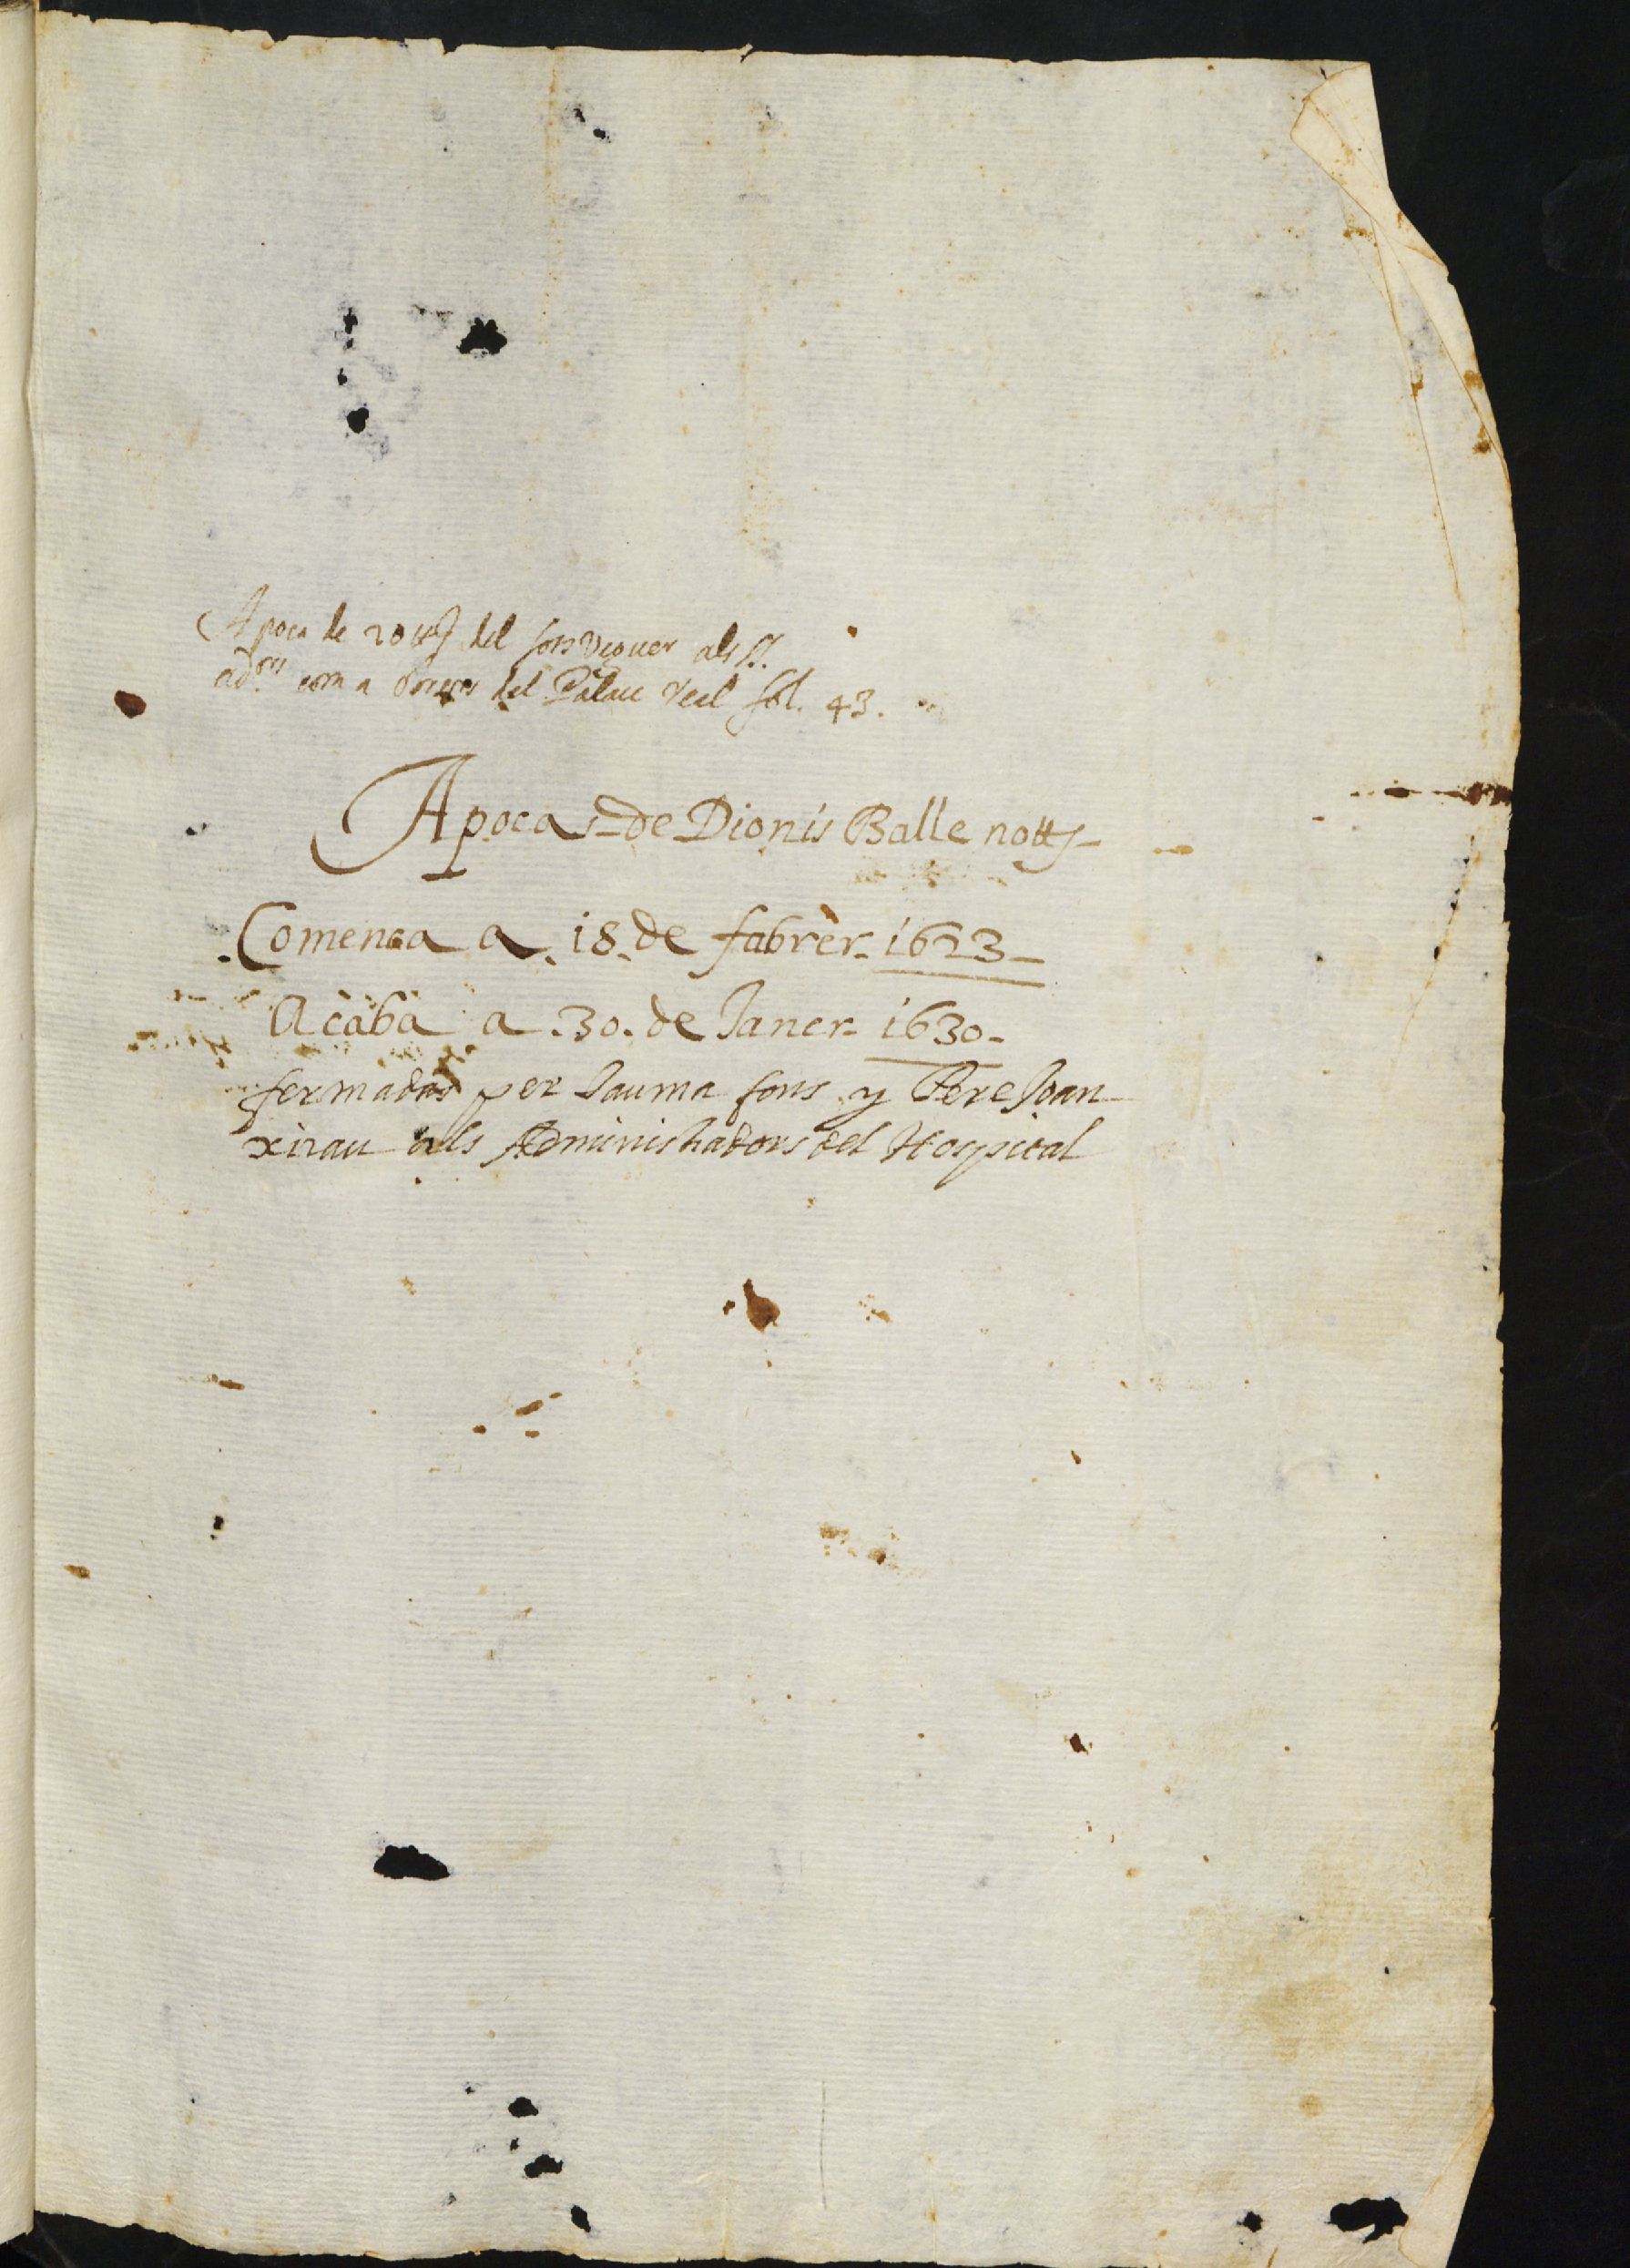 Apoca de 20 ll del sotsveguer als ss.
ad.ors com a del Palau Real fol. 43.
Apocas de Dionis Balle nott
Comensa a 18 de fabrer 1623
Acaba a .30. de Janer 1630.
fermadas per Jauma fons y Pere Joan
xirau als Administradors del Hospital